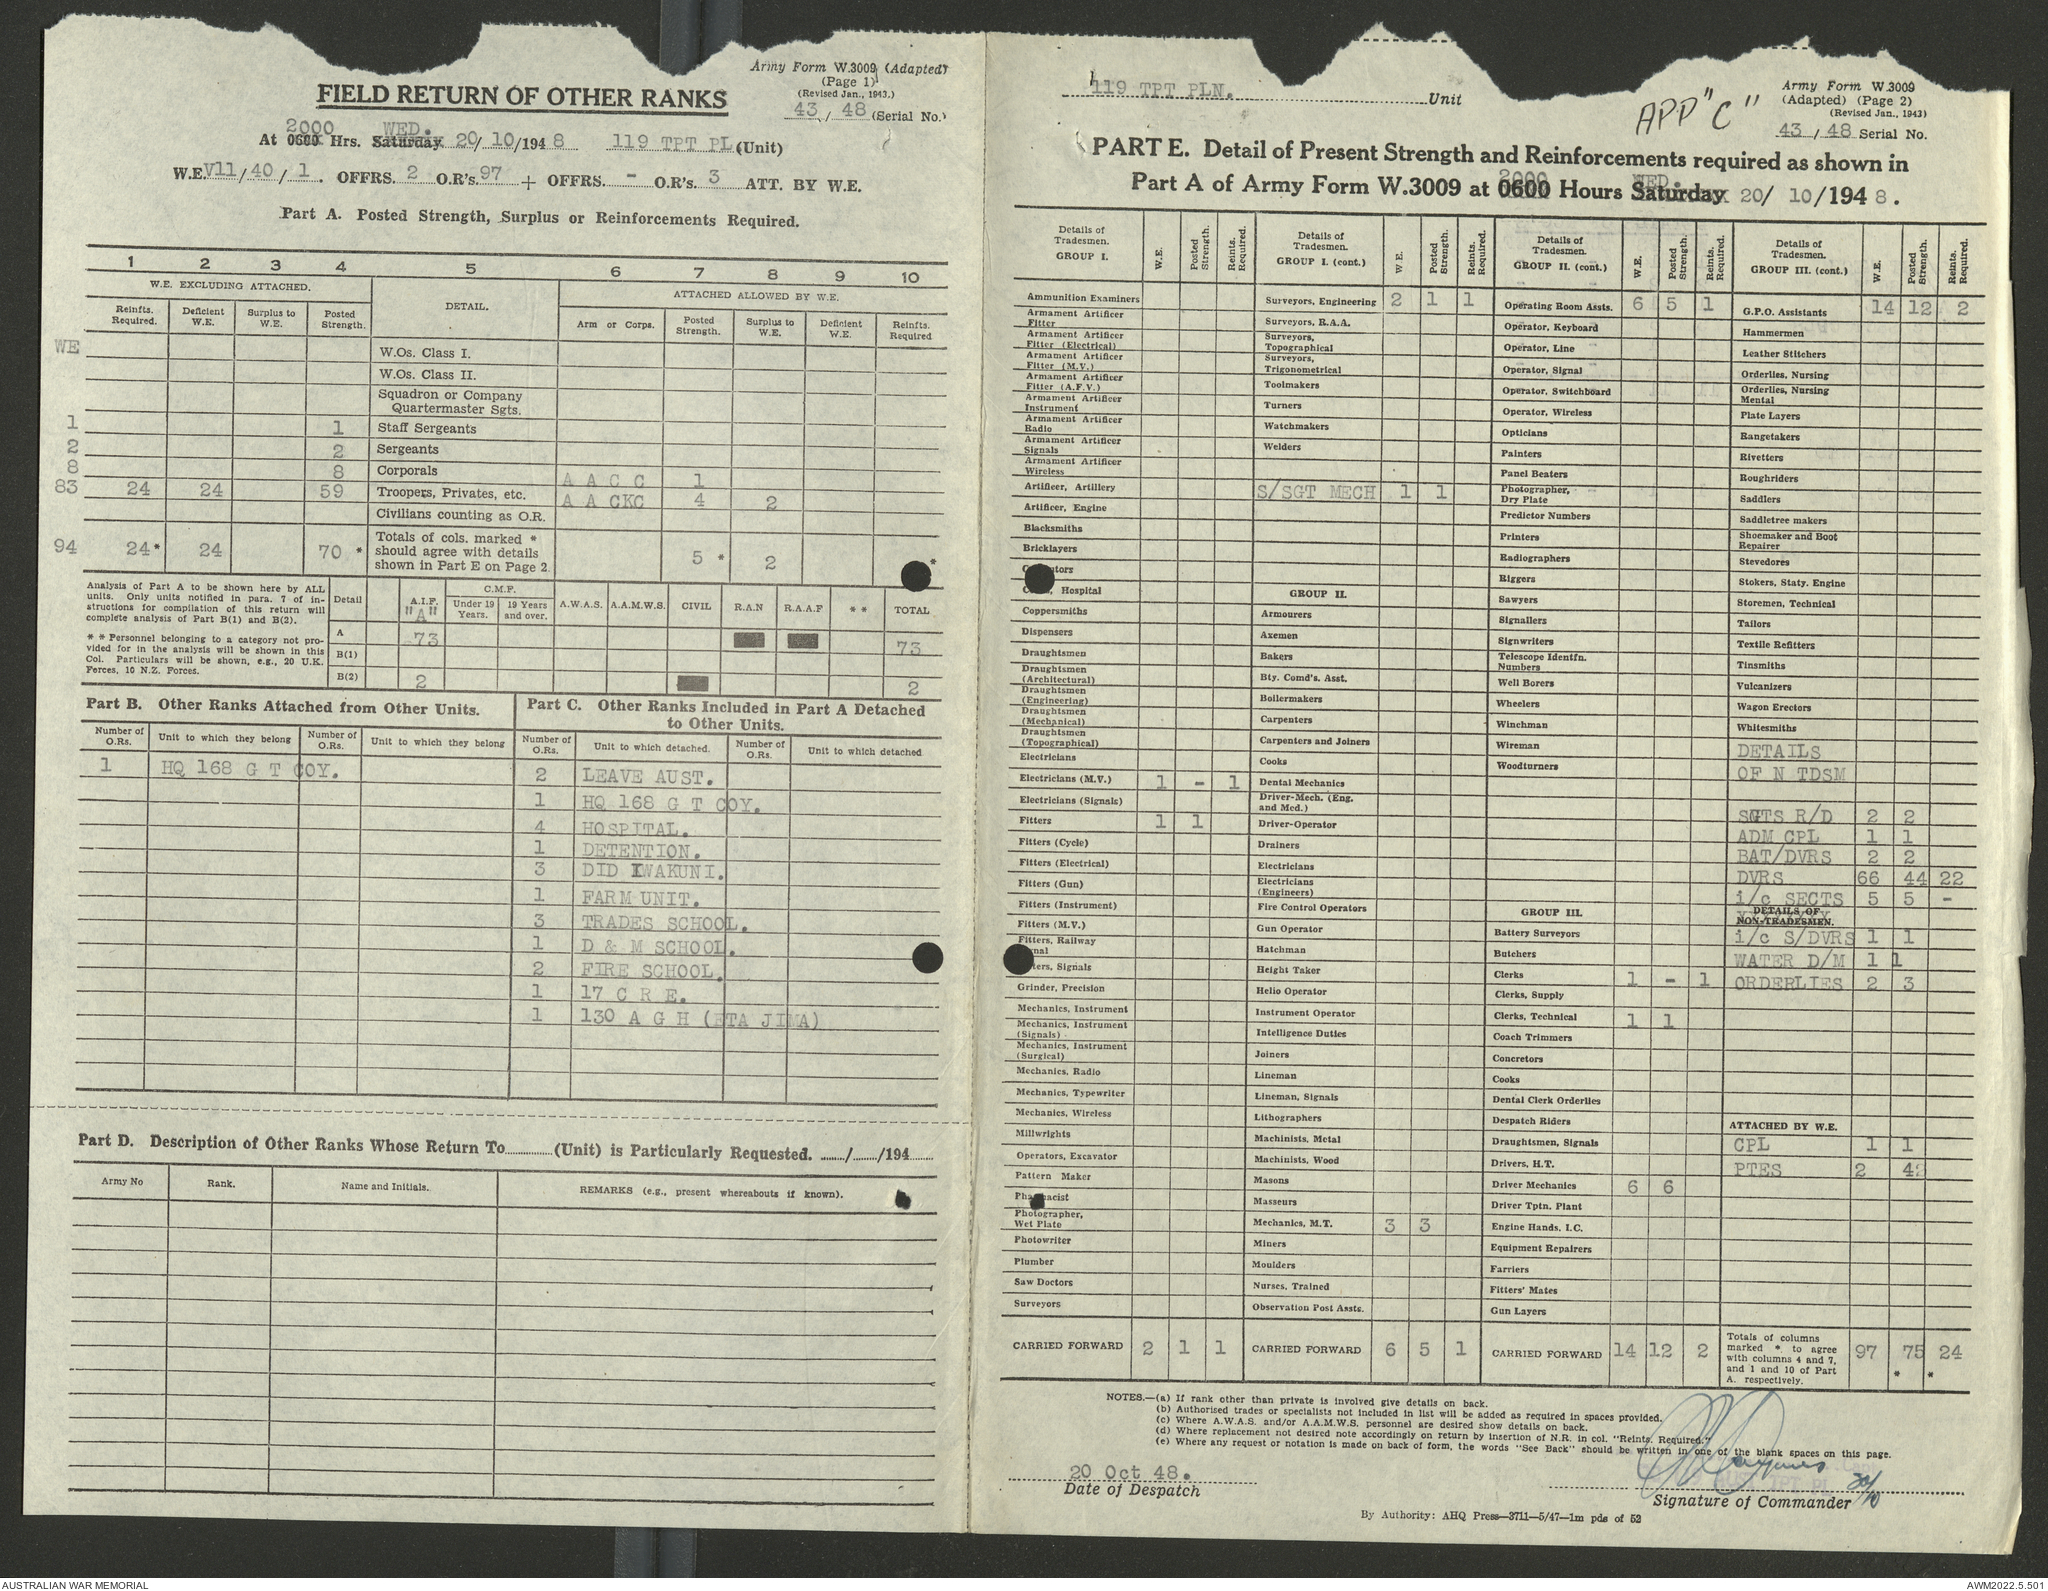 Army Form W.3009 (Adapted)
(Page 1)
(Revised Jan., 1943.)
FIELD RETURN OF OTHER RANKS
43 / 48 (Serial No.)
2000 WED.
At 0600 Hrs. Saturday 20/ 10/194 8 119 TPT PL (Unit)
W.E. V11/40/1. OFFRS. 2 O.R's. 97 + OFFRS. - O.R's. 3 ATT. BY W.E.
Part A. Posted Strength, Surplus or Reinforcements Required.
1 2 3 4 5 6 7 8 9 10
W.E. EXCLUDING ATTACHED. DETAIL. ATTACHED ALLOWED BY W.E.
Reinfts. Required. Deficient W.E. Surplus to W.E. Posted Strength. Arm or Corps. Posted Strength. Surplus to W.E. Deficient W.E. Reinfts. Required
WE W.Os. Class I.
W.Os. Class II.
Squadron or Company Quartermaster Sgts.
1 1 Staff Sergeants
2 2 Sergeants
8 8 Corporals A A C C 1
83 24 24 59 Troopers, Privates, etc. A A CKC 4 2
Civilians counting as O.R.
94 24* 24 70 * Totals of cols. marked * should agree with details shown in Part E on Page 2. 5 * 2 *
Analysis of Part A to be shown here by ALL units. Only units notified in para. 7 of instructions for compilation of this return will complete analysis of Part B(1) and B(2).
* * Personnel belonging to a category not provided for in the analysis will be shown in this Col. Particulars will be shown, e.g., 20 U.K. Forces, 10 N.Z. Forces.
Detail A.I.F. "A" C.M.F. Under 19 Years. 19 Years and over. A.W.A.S. A.A.M.W.S. CIVIL R.A.N R.A.A.F * * TOTAL
A 73 73
B(1)
B(2) 2 2
Part B. Other Ranks Attached from Other Units.
Number of O.Rs. Unit to which they belong Number of O.Rs. Unit to which they belong
1 HQ 168 G T COY.
Part C. Other Ranks Included in Part A Detached to Other Units.
Number of O.Rs. Unit to which detached. Number of O.Rs. Unit to which detached
2 LEAVE AUST.
1 HQ 168 G T COY.
4 HOSPITAL.
1 DETENTION.
3 DID IWAKUNI.
1 FARM UNIT.
3 TRADES SCHOOL.
1 D & M SCHOOL.
2 FIRE SCHOOL.
1 17 C R E.
1 130 A G H (ETA JIMA)
Part D. Description of Other Ranks Whose Return To............(Unit) is Particularly Requested. ....../....../194......
Army No Rank. Name and Initials. REMARKS (e.g., present whereabouts if known).
119 TPT PLN. Unit
APP "C"
Army Form W.3009
(Adapted) (Page 2)
(Revised Jan., 1943)
43 / 48 Serial No.
PART E. Detail of Present Strength and Reinforcements required as shown in
2000 WED.
Part A of Army Form W.3009 at 0600 Hours Saturday 20/ 10/194 8.
Details of Tradesmen. GROUP I. W.E. Posted Strength. Reints. Required.
Ammunition Examiners
Armament Artificer Fitter
Armament Artificer Fitter (Electrical)
Armament Artificer Fitter (M.V.)
Armament Artificer Fitter (A.F.V.)
Armament Artificer Instrument
Armament Artificer Radio
Armament Artificer Signals
Armament Artificer Wireless
Artificer, Artillery
Artificer, Engine
Blacksmiths
Bricklayers
Hospital
Coppersmiths
Dispensers
Draughtsmen
Draughtsmen (Architectural)
Draughtsmen (Engineering)
Draughtsmen (Mechanical)
Draughtsmen (Topographical)
Electricians
Electricians (M.V.) 1 - 1
Electricians (Signals)
Fitters 1 1
Fitters (Cycle)
Fitters (Electrical)
Fitters (Gun)
Fitters (Instrument)
Fitters (M.V.)
Fitters, Railway
Signals
Grinder, Precision
Mechanics, Instrument
Mechanics, Instrument (Signals)
Mechanics, Instrument (Surgical)
Mechanics, Radio
Mechanics, Typewriter
Mechanics, Wireless
Millwrights
Operators, Excavator
Pattern Maker
Pharmacist
Photographer, Wet Plate
Photowriter
Plumber
Saw Doctors
Surveyors
CARRIED FORWARD 2 1 1
Details of Tradesmen. GROUP I. (cont.) W.E. Posted Strength. Reints. Required.
Surveyors, Engineering 2 1 1
Surveyors, R.A.A.
Surveyors, Topographical
Surveyors, Trigonometrical
Toolmakers
Turners
Watchmakers
Welders
S/SGT MECH 1 1
GROUP II.
Armourers
Axemen
Bakers
Bty. Comd's. Asst.
Boilermakers
Carpenters
Carpenters and Joiners
Cooks
Dental Mechanics
Driver-Mech. (Eng. and Med.)
Driver-Operator
Drainers
Electricians
Electricians (Engineers)
Fire Control Operators
Gun Operator
Hatchman
Height Taker
Helio Operator
Instrument Operator
Intelligence Duties
Joiners
Lineman
Lineman, Signals
Lithographers
Machinists, Metal
Machinists, Wood
Masons
Masseurs
Mechanics, M.T. 3 3
Miners
Moulders
Nurses, Trained
Observation Post Assts.
CARRIED FORWARD 6 5 1
Details of Tradesmen. GROUP II. (cont.) W.E. Posted Strength. Reints. Required.
Operating Room Assts. 6 5 1
Operator, Keyboard
Operator, Line
Operator, Signal
Operator, Switchboard
Operator, Wireless
Opticians
Painters
Panel Beaters
Photographer, Dry Plate
Predictor Numbers
Printers
Radiographers
Riggers
Sawyers
Signallers
Signwriters
Telescope Identfn. Numbers
Well Borers
Wheelers
Winchman
Wireman
Woodturners
GROUP III.
Battery Surveyors
Butchers
Clerks 1 - 1
Clerks, Supply
Clerks, Technical 1 1
Coach Trimmers
Concretors
Cooks
Dental Clerk Orderlies
Despatch Riders
Draughtsmen, Signals
Drivers, H.T.
Driver Mechanics 6 6
Driver Tptn. Plant
Engine Hands, I.C.
Equipment Repairers
Farriers
Fitters' Mates
Gun Layers
CARRIED FORWARD 14 12 2
Details of Tradesmen. GROUP III. (cont.) W.E. Posted Strength. Reints. Required.
G.P.O. Assistants 14 12 2
Hammermen
Leather Stitchers
Orderlies, Nursing
Orderlies, Nursing Mental
Plate Layers
Rangetakers
Rivetters
Roughriders
Saddlers
Saddletree makers
Shoemaker and Boot Repairer
Stevedores
Stokers, Staty. Engine
Storemen, Technical
Tailors
Textile Refitters
Tinsmiths
Vulcanizers
Wagon Erectors
Whitesmiths
DETAILS
OF N TDSM
SGTS R/D 2 2
ADM CPL 1 1
BAT/DVRS 2 2
DVRS 66 44 22
i/c SECTS 5 5 -
DETAILS OF NON-TRADESMEN.
i/c S/DVRS 1 1
WATER D/M 1 1
ORDERLIES 2 3
ATTACHED BY W.E.
CPL 1 1
PTES 2 4
Totals of columns marked * to agree with columns 4 and 7, and 1 and 10 of Part A. respectively. 97 75 * 24 *
NOTES.—(a) If rank other than private is involved give details on back.
(b) Authorised trades or specialists not included in list will be added as required in spaces provided.
(c) Where A.W.A.S. and/or A.A.M.W.S. personnel are desired show details on back.
(d) Where replacement not desired note accordingly on return by insertion of N.R. in col. "Reints. Required."
(e) Where any request or notation is made on back of form, the words "See Back" should be written in one of the blank spaces on this page.
20 Oct 48.
Date of Despatch
20/10
Signature of Commander
By Authority: AHQ Press—3711—5/47—1m pds of 52
AUSTRALIAN WAR MEMORIAL
AWM2022.5.501